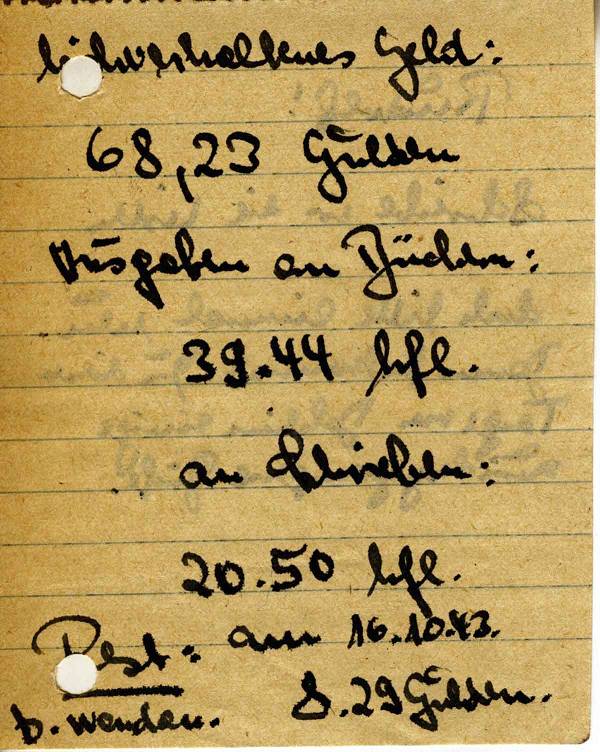 Geld:
68,23 Gulden
Ausgaben an Büchern:
39.44 hfl.
an
20.50 hfl.
Rest: am 16.10.43.
8.29 Gulden.
b. wenden.